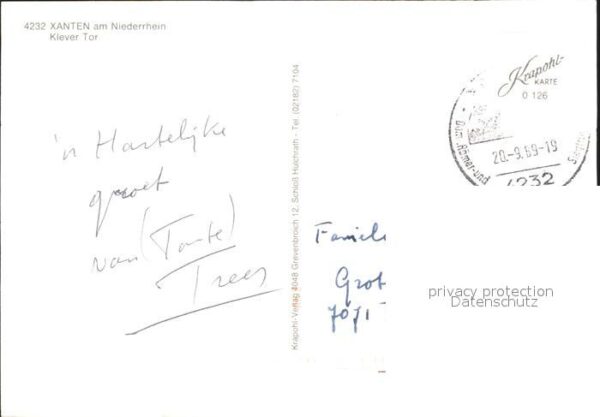 4232 XANTEN am Niederrhein
Klever Tor
'n Hartelijke
groet
van (Tante)
Trees
Krapohl-Verlag 4048 Grevenbroich 12, Schloß Hülchrath - Tel. (02182) 7104
Krapohl-
KARTE
0 126
Dom, Römer-und
20.-9.69-19
4232
Famiel
Grot
7071
privacy protection
Datenschutz